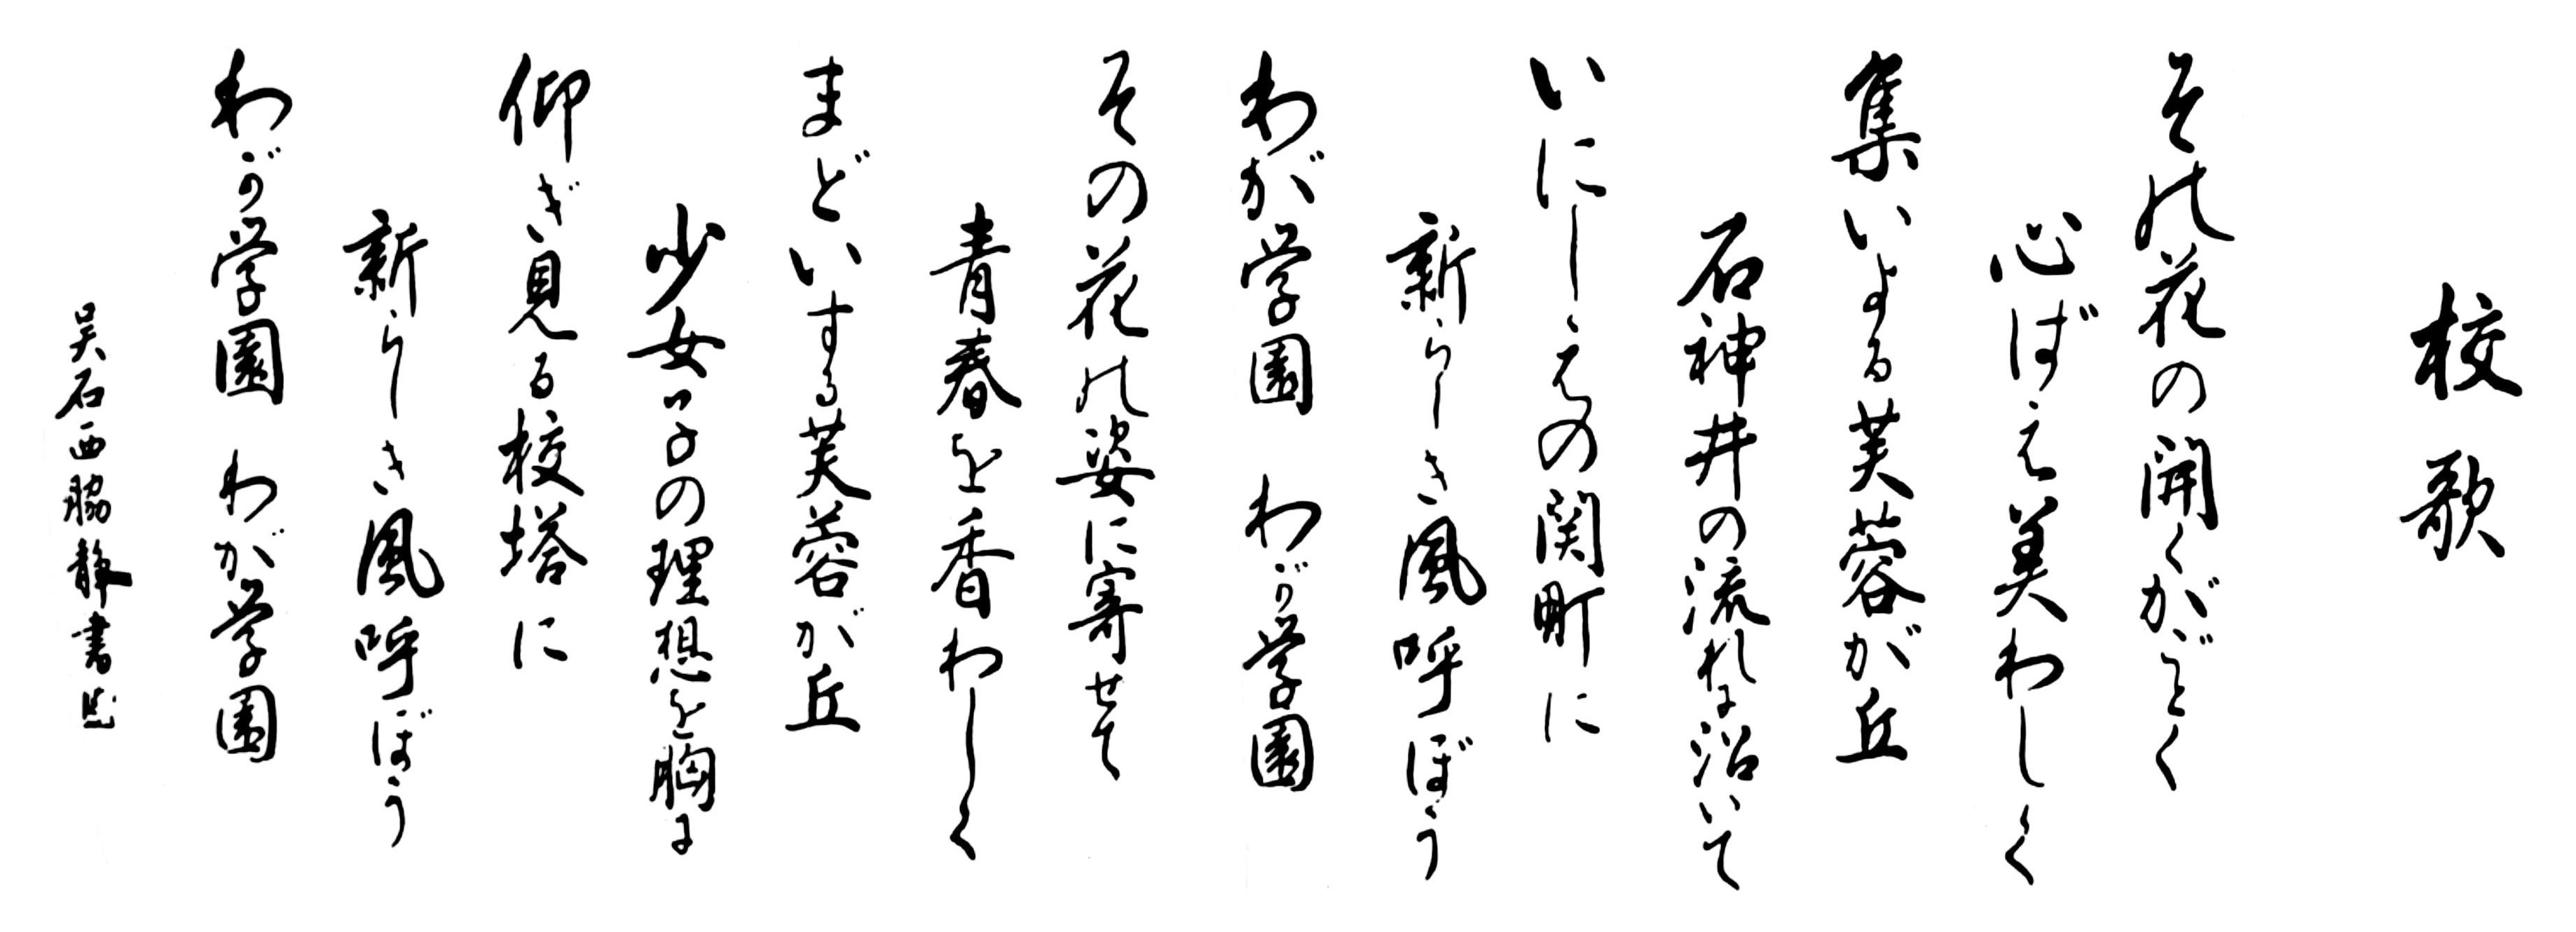 校歌
その花の開くがごとく
心ばえ美わしく
集いよる芙蓉が丘
石神井の流れに沿いて
いにしえの関町に
新らしき風呼ぼう
わが学園 わが学園
その花の姿に寄せて
青春を香わしく
まどいする芙蓉が丘
少女子の理想を胸に
仰ぎ見る校塔に
新らしき風呼ぼう
わが学園 わが学園
呉石西脇静書